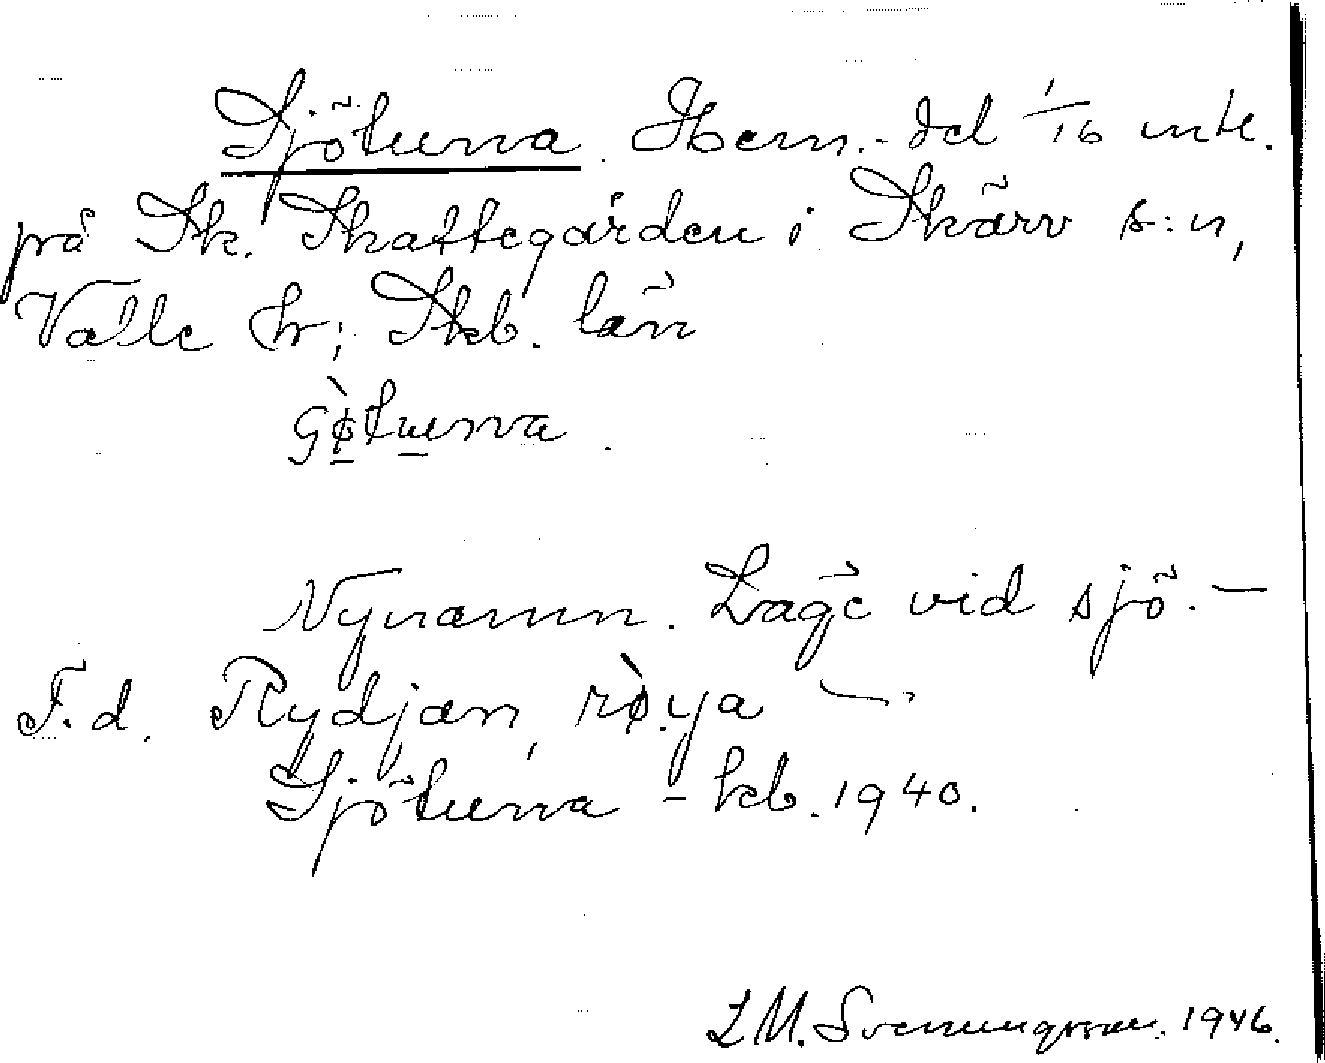 Sjötuna. Hem.-del 1/16 mtl.
på Sk. Skattegården i Skärv s:n,
Valle hr; Skb. län
Nynamn. Läge vid sjö. —
F. d. Rydjan,
Sjötuna - kb. 1940.
L M. Svenungsson. 1946.